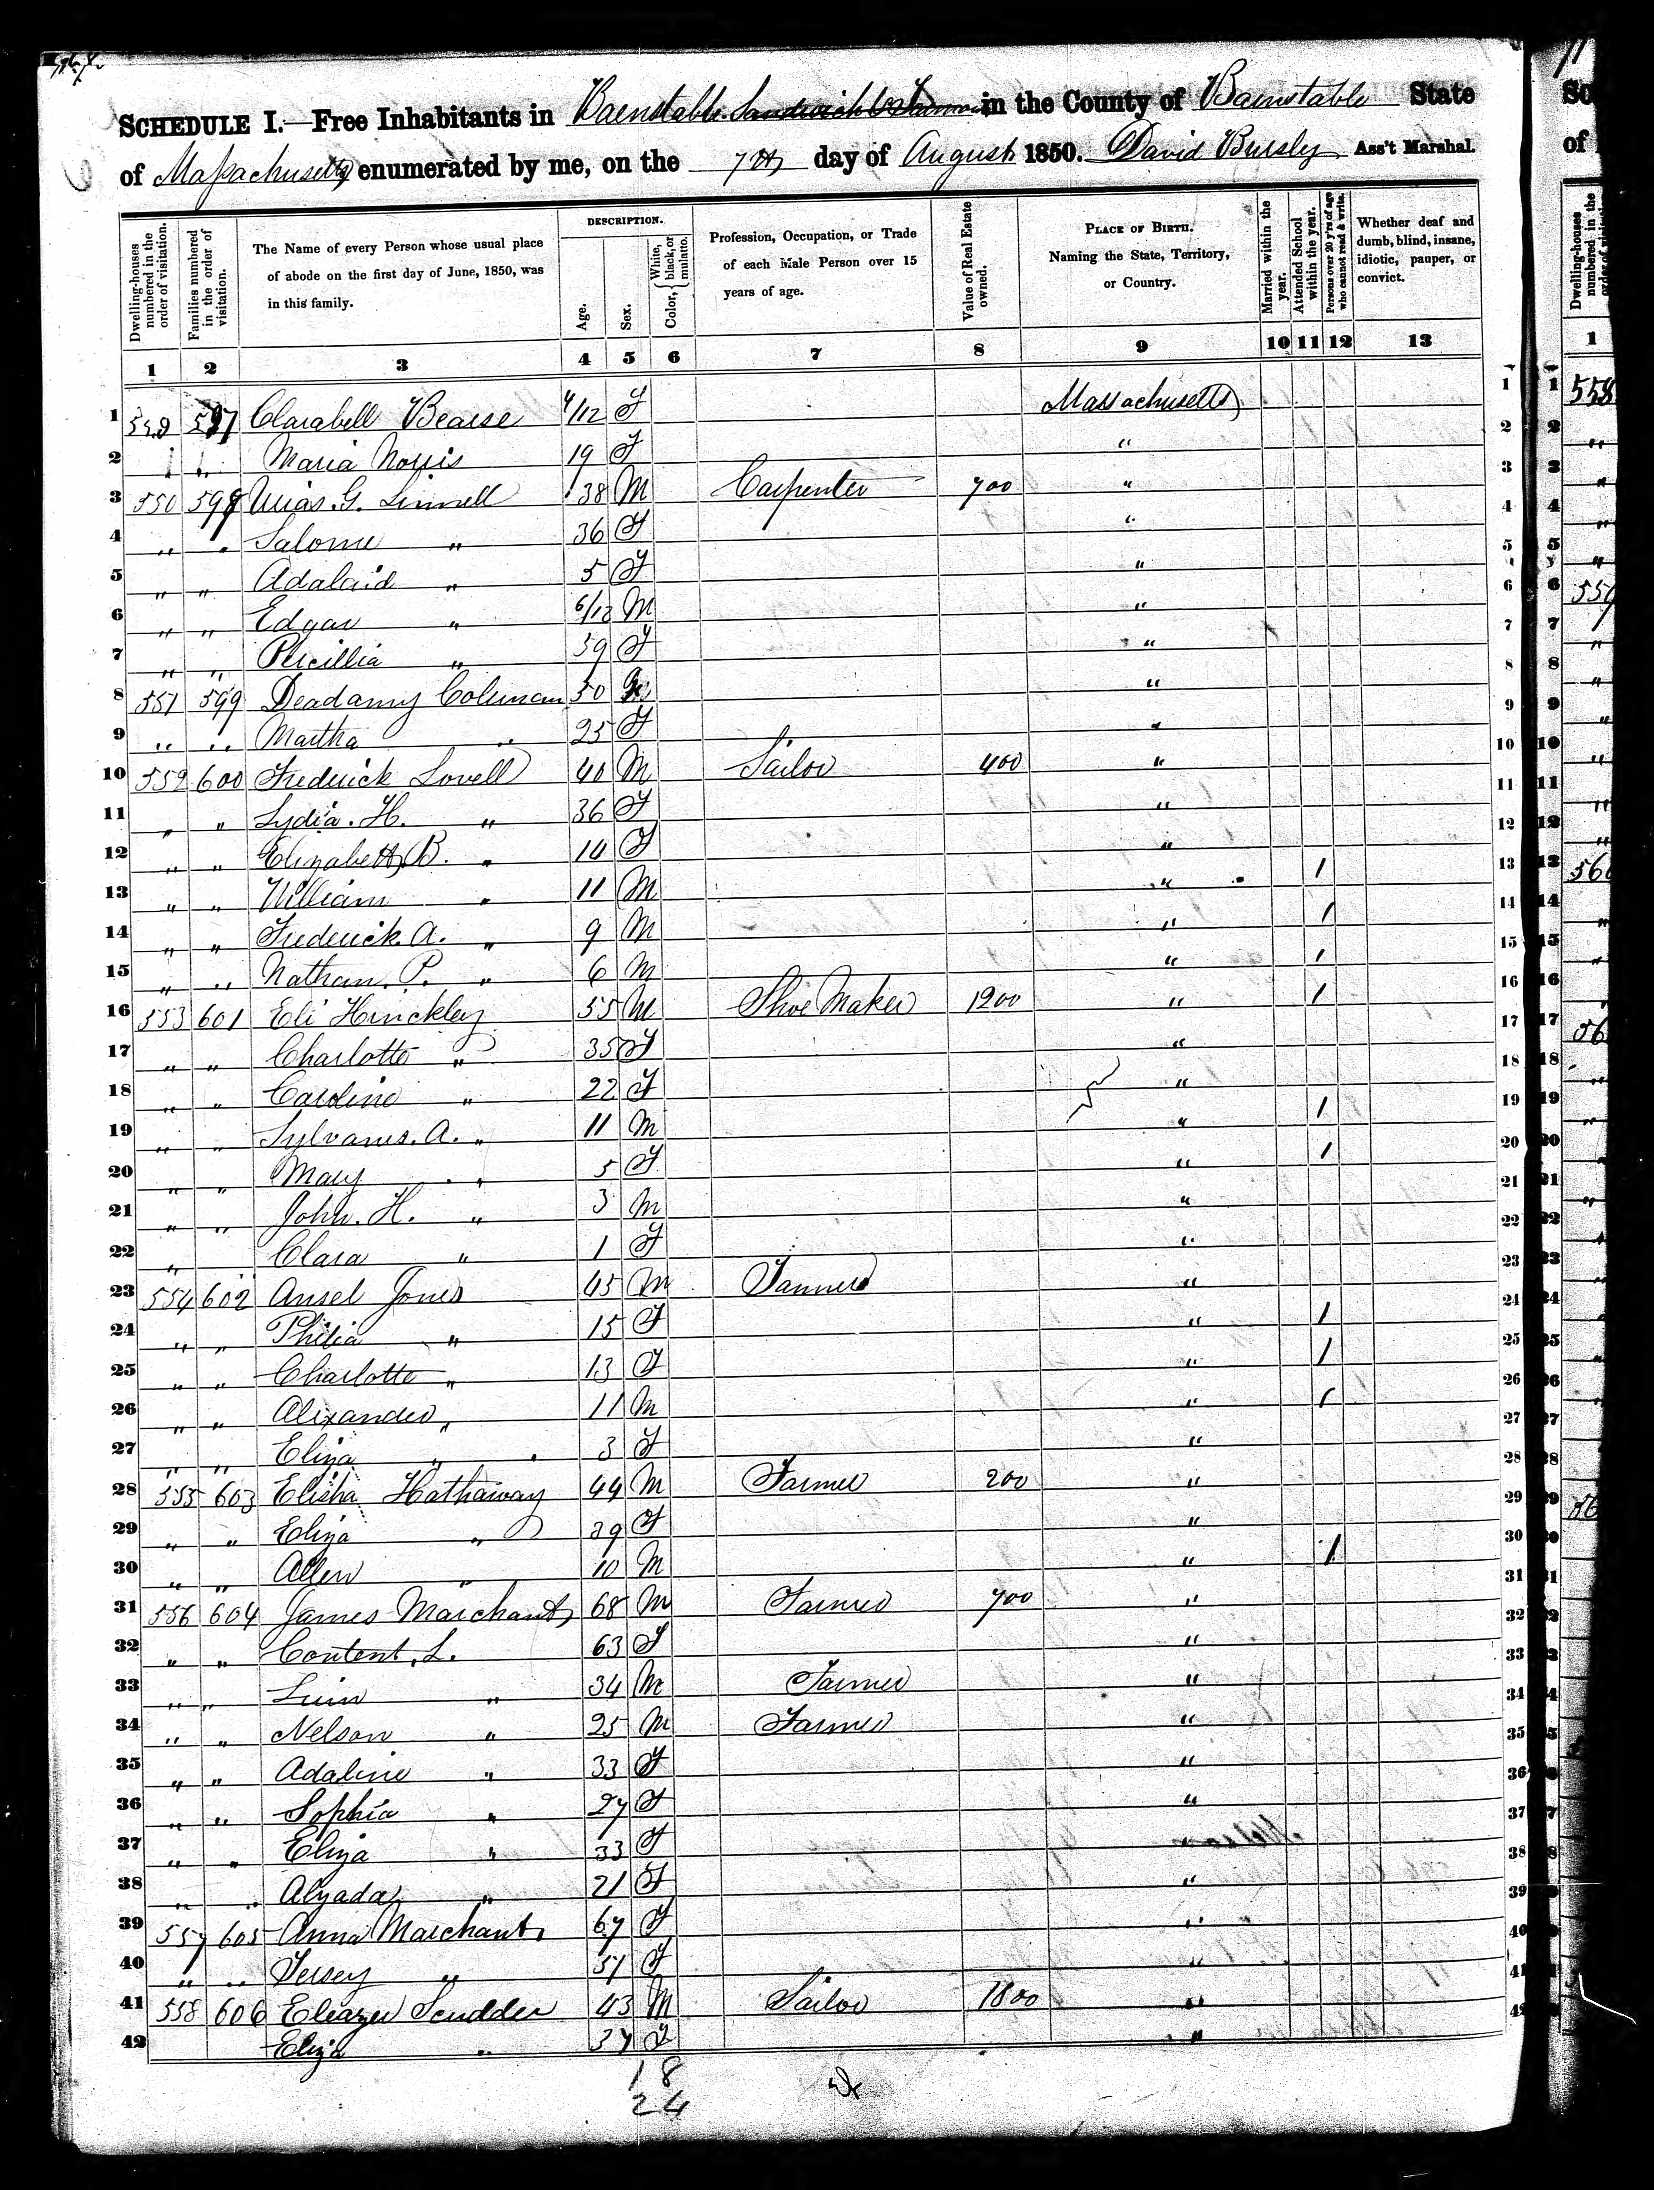 SCHEDULE I.—Free Inhabitants in Barnstable in the County of Barnstable State
of Massachusetts enumerated by me, on the 7th day of August 1850. David Bursley Ass't Marshal.
Dwelling-houses numbered in the order of visitation.
Families numbered in the order of visitation.
The Name of every Person whose usual place of abode on the first day of June, 1850, was in this family.
DESCRIPTION.
Age.
Sex.
Color, White, black, or mulatto.
Profession, Occupation, or Trade of each Male Person over 15 years of age.
Value of Real Estate owned.
PLACE OF BIRTH.
Naming the State, Territory, or Country.
Married within the year.
Attended School within the year.
Persons over 20 y'rs of age who cannot read & write.
Whether deaf and dumb, blind, insane, idiotic, pauper, or convict.
1 2 3 4 5 6 7 8 9 10 11 12 13
1 549 597 Clarabell Bearse 4/12 F Massachusetts 1
2 " " Maria Norris 19 F " 2
3 550 598 Urias. G. Linnell 38 M Carpenter 700 " 3
4 " " Salome " 36 F " 4
5 " " Adalaid " 5 F " 5
6 " " Edgar " 6/12 M " 6
7 " " Percillia " 59 F " 7
8 551 599 Deadamy Coleman 50 " 8
9 " " Martha " 25 F " 9
10 552 600 Frederick Lovell 40 M Sailor 400 " 10
11 " " Lydia. H. " 36 F " 11
12 " " Elizabeth B. " 14 F " 12
13 " " William " 11 M " 1 13
14 " " Frederick A. " 9 M " 1 14
15 " " Nathan. P. " 6 M " 1 15
16 553 601 Eli Hinckley 55 M Shoe Maker 1200 " 1 16
17 " " Charlotte " 35 F " 17
18 " " Caroline " 22 F " 18
19 " " Sylvanus. A. " 11 M " 1 19
20 " " Mary " 5 F " 1 20
21 " " John. H. " 3 M " 21
22 " Clara " 1 F " 22
23 554 602 Ansel Jones 45 M " 23
24 " " Philia " 15 F " 1 24
25 " " Charlotte " 13 F " 1 25
26 " " Alixander " 11 M " 1 26
27 " " Eliza " 3 F " 27
28 555 603 Elisha Hathaway 44 M Farmer 200 " 28
29 " " Eliza " 39 F " 29
30 " " Allen " 10 M " 1 30
31 556 604 James Marchant 68 M Farmer 700 " 31
32 " " Content. L. 63 F " 32
33 " " " 34 M Farmer " 33
34 " " Nelson " 25 M Farmer " 34
35 " " Adaline " 33 F " 35
36 " " Sophia " 27 F " 36
37 " " Eliza " 33 F " 37
38 " " Alzada " 21 F " 38
39 557 605 Anna Marchant 67 F " 39
40 " " " F " 40
41 558 606 Eleazer Scudder 43 M Sailor 1800 " 41
42 Eliza " 37 F " 42
18
24